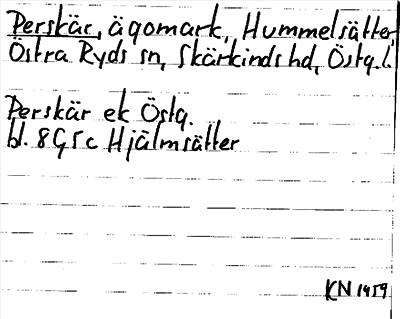 Perskär, ägomark, Hummelsätter,
Östra Ryds sn, Skärkinds hd, Östg.l.
Perskär ek Östg.
bl. 8G5c Hjälmsätter
KN 1959